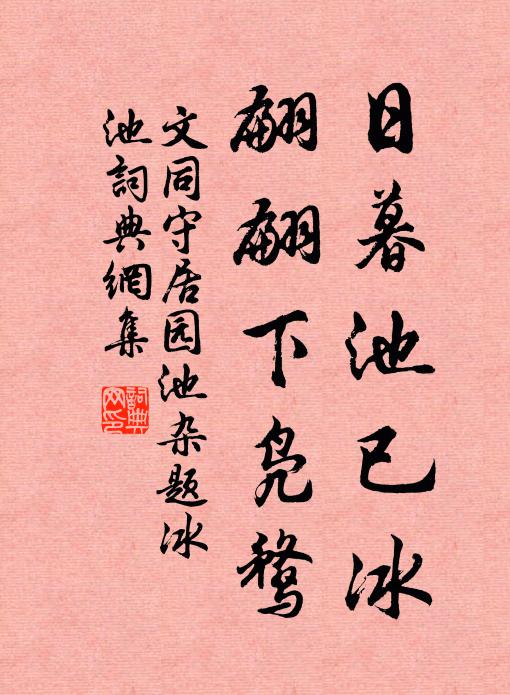 日暮池已冰
翩翩下凫鹜
文同守居园池杂题冰
池詞典網集
詞典
网印